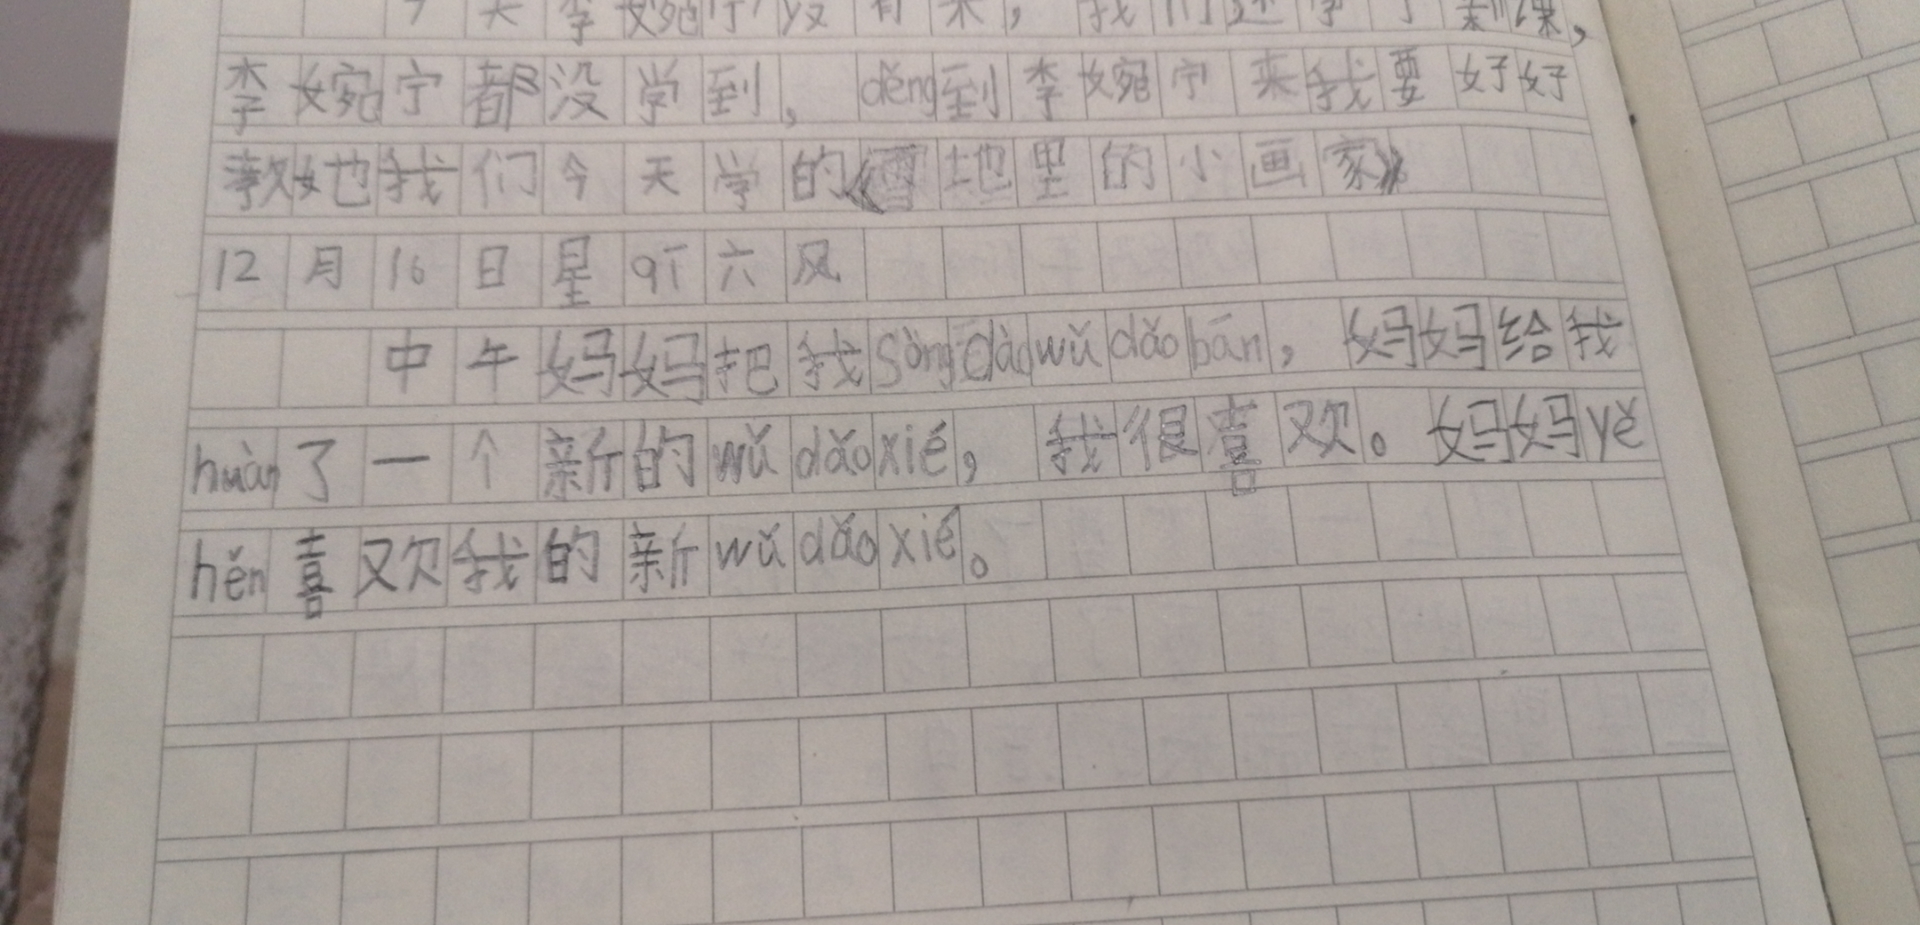 今天李婉宁没有来，我们还学了新课，
李婉宁都没学到，děng到李婉宁来我要好好
教她我们今天学的《雪地里的小画家》
12月16日星qī六风
中午妈妈把我sòng dào wǔ dǎo bān，妈妈给我
huàn了一个新的wǔ dǎo xié，我很喜欢。妈妈yě
hěn喜欢我的新wǔ dǎo xié。